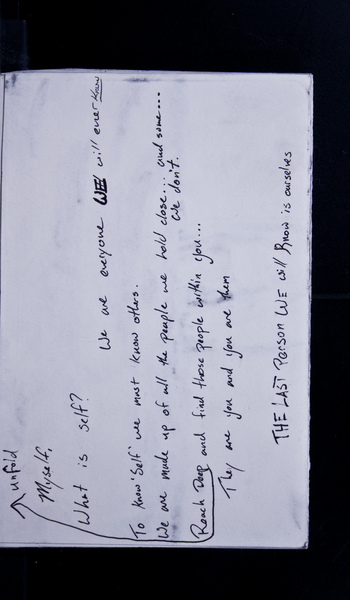 unfold
Myself,
What is self?
We are everyone WE will ever know
To know 'Self' we must know others.
We are made up of all the people we hold close... and some...
we don't.
Reach Deep and find those people within you...
They are you and you are them
THE LAST PERSON WE will Know is ourselves